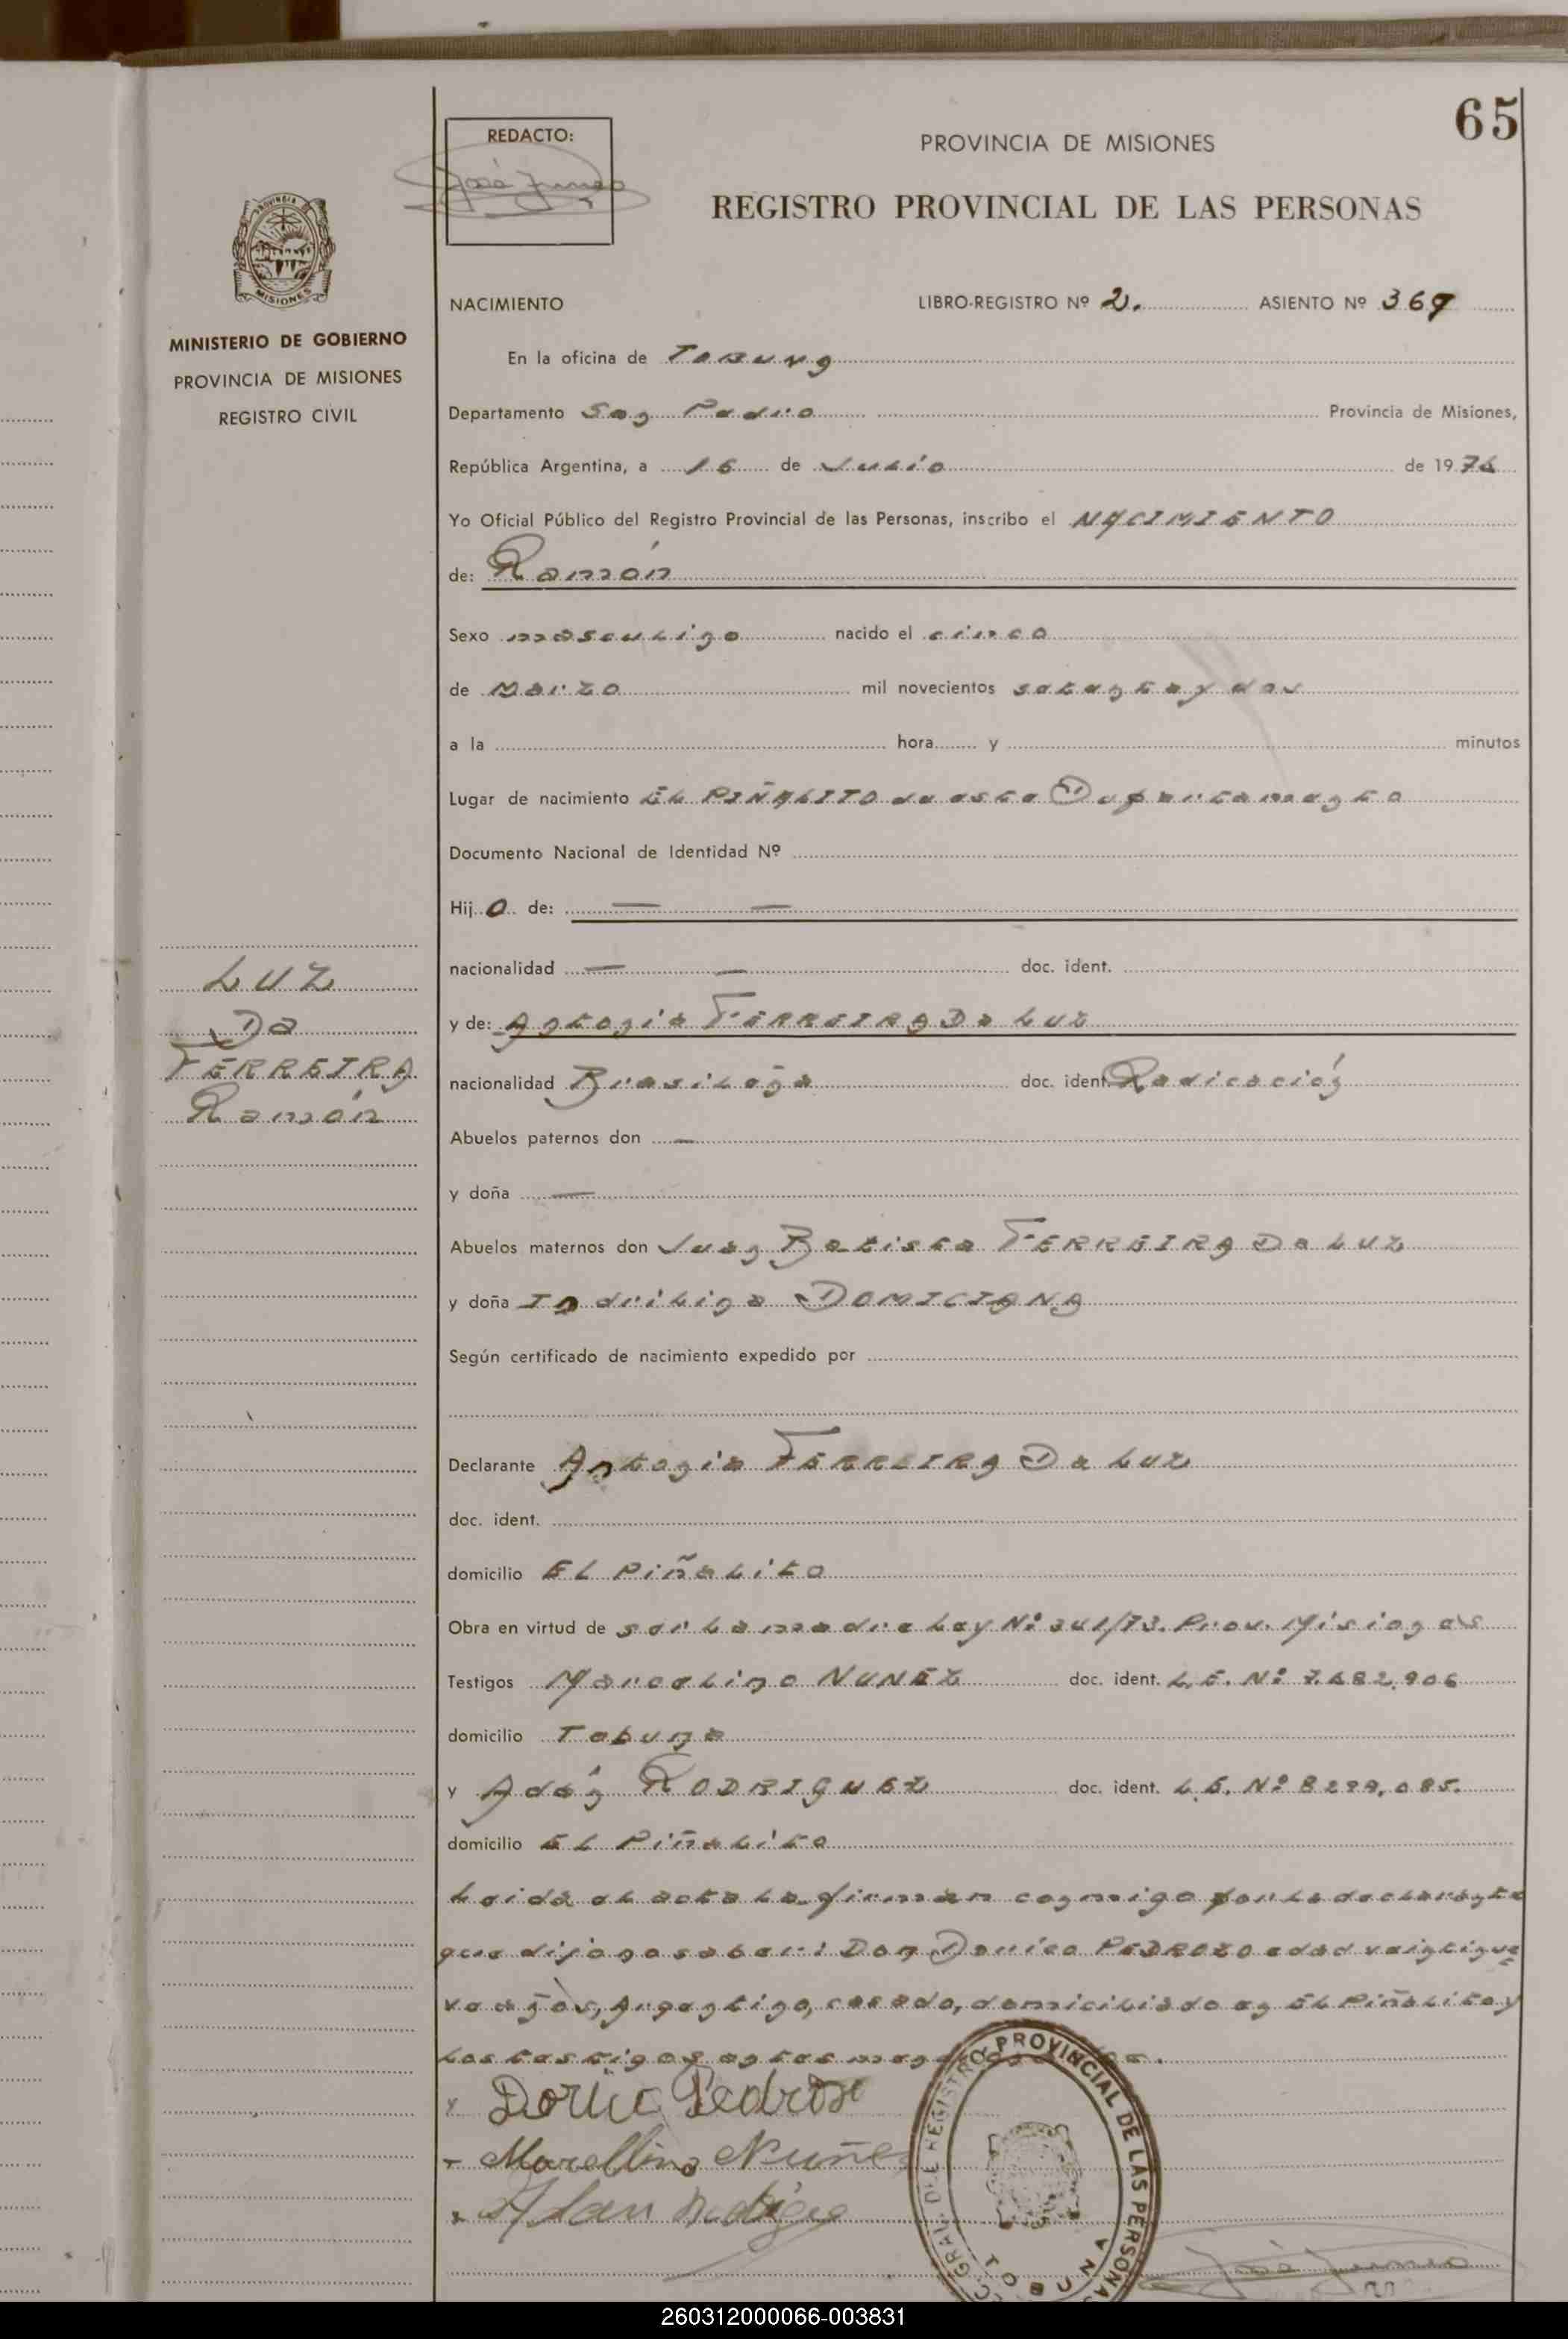 65
REDACTO:
PROVINCIA DE MISIONES
REGISTRO PROVINCIAL DE LAS PERSONAS
MISIONES
MINISTERIO DE GOBIERNO
PROVINCIA DE MISIONES
REGISTRO CIVIL
NACIMIENTO LIBRO-REGISTRO Nº 2. ASIENTO Nº 369
En la oficina de TOBUNA
Departamento San Pedro Provincia de Misiones,
República Argentina, a 16 de Julio de 1976
Yo Oficial Público del Registro Provincial de las Personas, inscribo el NACIMIENTO
de: Ramón
Sexo masculino nacido el cinco
de Marzo mil novecientos setenta y dos
a la hora y minutos
Lugar de nacimiento EL PIÑALITO de este Departamento
Documento Nacional de Identidad Nº
Hij o de: — —
nacionalidad — — doc. ident.
y de: Antonia FERREIRA Da LUZ
nacionalidad Brasileña doc. ident. Radicación
Abuelos paternos don —
y doña —
Abuelos maternos don Juan Batista FERREIRA Da LUZ
y doña DOMICIANA
Según certificado de nacimiento expedido por
Declarante Antonia FERREIRA Da LUZ
doc. ident.
domicilio EL Piñalito
Obra en virtud de ser la madre Ley Nº 341/73. Prov. Misiones
Testigos Marcelino NUNEZ doc. ident. L.E. Nº 7.482.906
domicilio Tobuna
y Adán RODRIGUEZ doc. ident. L.E. Nº 8299.085.
domicilio EL Piñalito
Leida el acta la firman conmigo por la declarante
que dijo no saber: Don Dorico PEDROZO edad veintinue=
ve años, Argentino, casado, domiciliado en EL Piñalito y
los testigos antes
LUZ
Da
FERREIRA
Ramón
Pedroso
Marcelino Nuñes
GRAL. DE REGISTRO PROVINCIAL DE LAS PERSONAS
TOBUNA
260312000066-003831